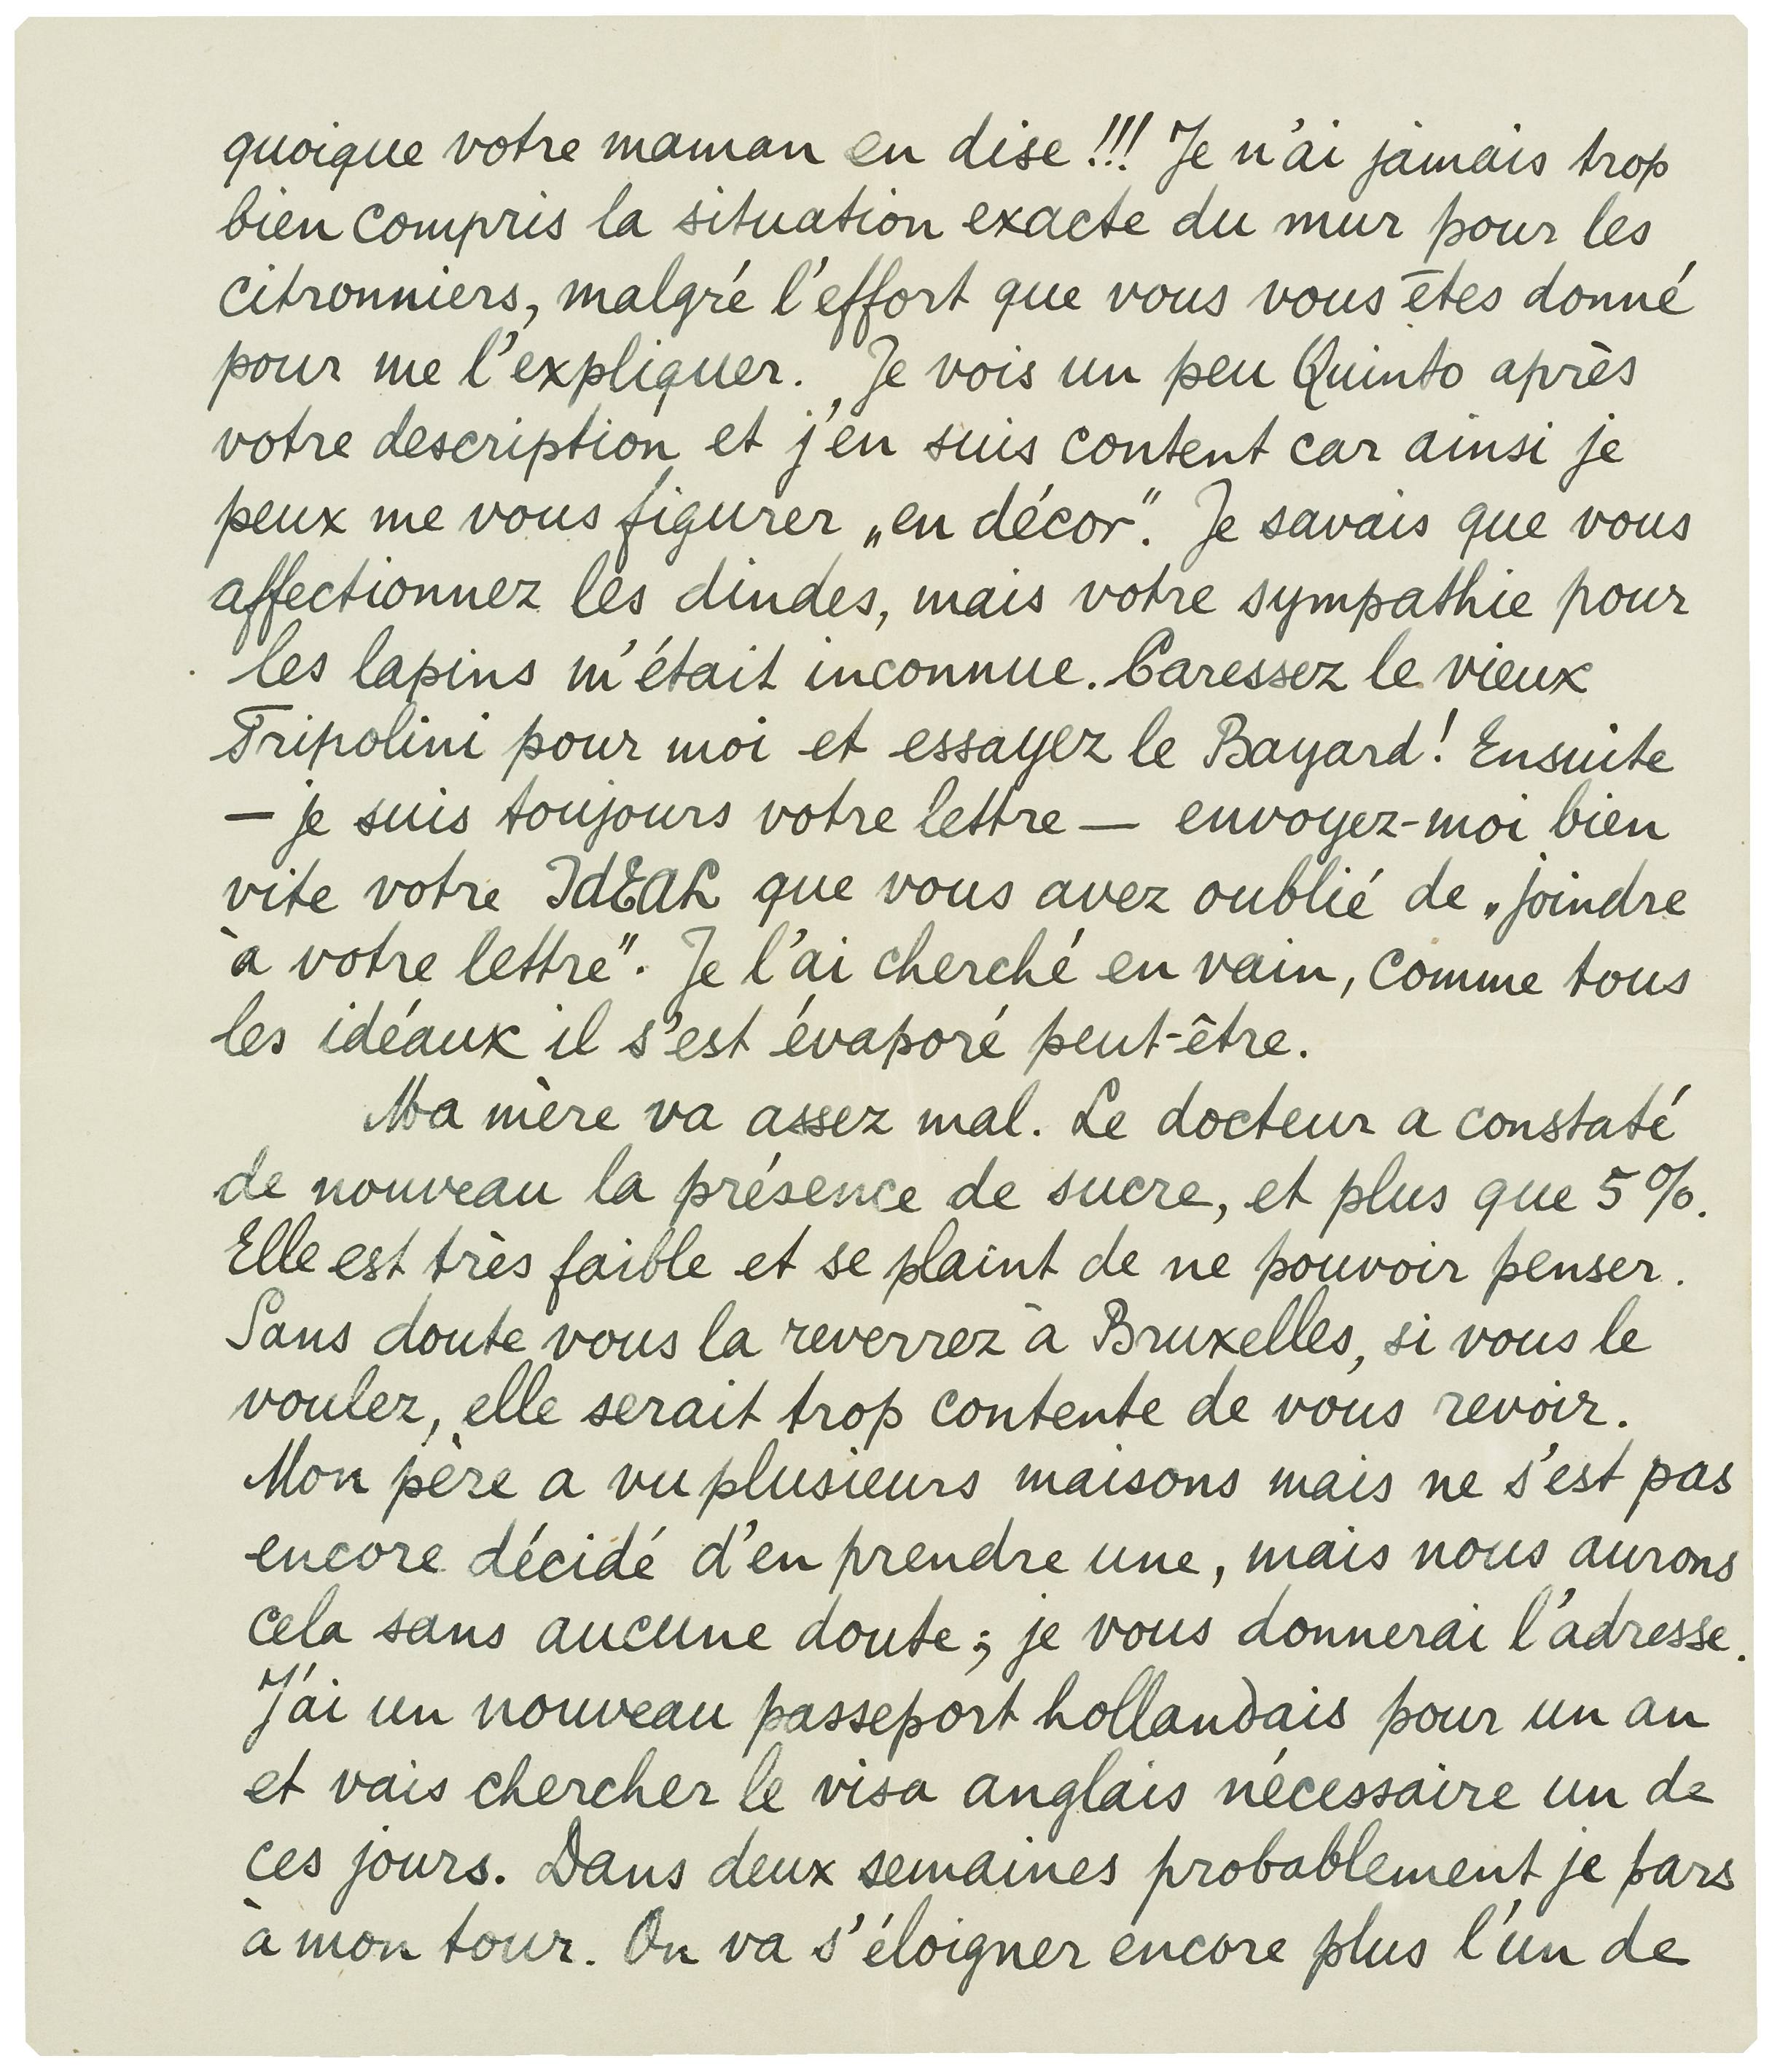 quoique votre maman en dise !!! Je n'ai jamais trop
bien compris la situation exacte du mur pour les
citronniers, malgré l'effort que vous vous êtes donné
pour me l'expliquer. Je vois un peu Quinto après
votre description et j'en suis content car ainsi je
peux me vous figurer „en décor". Je savais que vous
affectionnez les dindes, mais votre sympathie pour
les lapins m'était inconnue. Caressez le vieux
Tripolini pour moi et essayez le Bayard! Ensuite
— je suis toujours votre lettre — envoyez-moi bien
vite votre IdEAL que vous avez oublié de „joindre
à votre lettre". Je l'ai cherché en vain, comme tous
les idéaux il s'est évaporé peut-être.
Ma mère va assez mal. Le docteur a constaté
de nouveau la présence de sucre, et plus que 5%.
Elle est très faible et se plaint de ne pouvoir penser.
Sans doute vous la reverrez à Bruxelles, si vous le
voulez, elle serait trop contente de vous revoir.
Mon père a vu plusieurs maisons mais ne s'est pas
encore décidé d'en prendre une, mais nous aurons
cela sans aucune doute; je vous donnerai l'adresse.
J'ai un nouveau passeport hollandais pour un an
et vais chercher le visa anglais nécessaire un de
ces jours. Dans deux semaines probablement je pars
à mon tour. On va s'éloigner encore plus l'un de